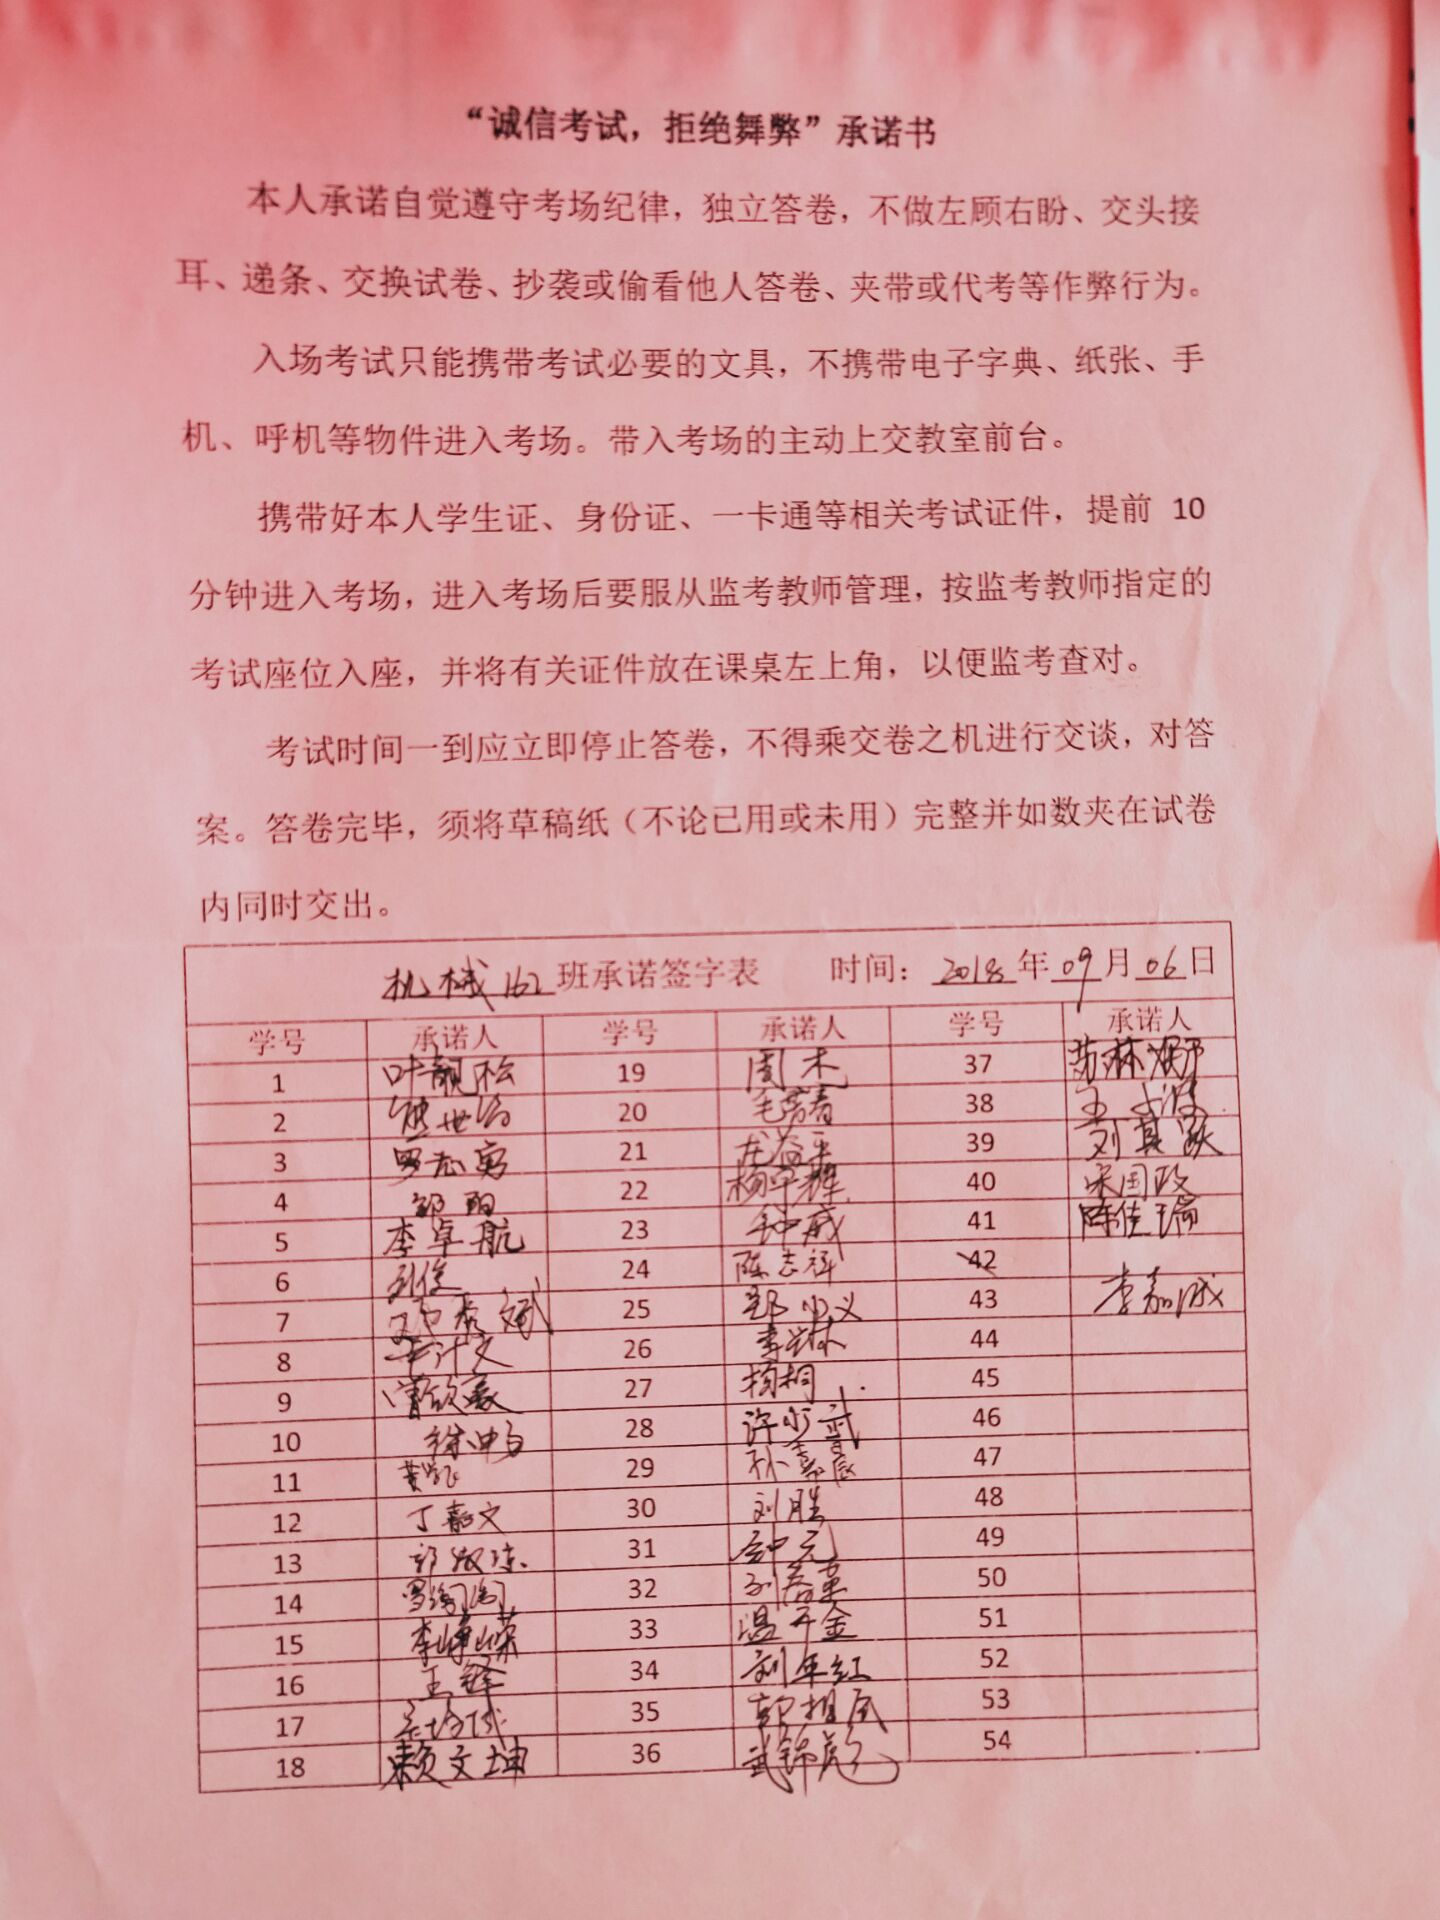 “诚信考试，拒绝舞弊”承诺书
本人承诺自觉遵守考场纪律，独立答卷，不做左顾右盼、交头接
耳、递条、交换试卷、抄袭或偷看他人答卷、夹带或代考等作弊行为。
入场考试只能携带考试必要的文具，不携带电子字典、纸张、手
机、呼机等物件进入考场。带入考场的主动上交教室前台。
携带好本人学生证、身份证、一卡通等相关考试证件，提前 10
分钟进入考场，进入考场后要服从监考教师管理，按监考教师指定的
考试座位入座，并将有关证件放在课桌左上角，以便监考查对。
考试时间一到应立即停止答卷，不得乘交卷之机进行交谈，对答
案。答卷完毕，须将草稿纸（不论已用或未用）完整并如数夹在试卷
内同时交出。
机械162班承诺签字表 时间：2018年09月06日
学号 承诺人 学号 承诺人 学号 承诺人
1 叶靓松 19 周木 37
2 熊世谷 20 毛芳春 38
3 罗志勇 21 龙益平 39 刘其跃
4 邹阳 22 杨宇辉 40 宋国政
5 李卓航 23 钟威 41 陈佳瑞
6 刘俊 24 陈志祥 42
7 邓秀斌 25 郑小义 43 李嘉成
8 26 李琳 44
9 曾欣豪 27 杨桐 45
10 徐坤 28 许少武 46
11 黄凯 29 孙嘉晨 47
12 丁嘉文 30 刘胜 48
13 31 钟元 49
14 罗海阔 32 50
15 李峥嵘 33 温平金 51
16 王锋 34 刘年红 52
17 35 彭相风 53
18 赖文坤 36 武锦彪 54